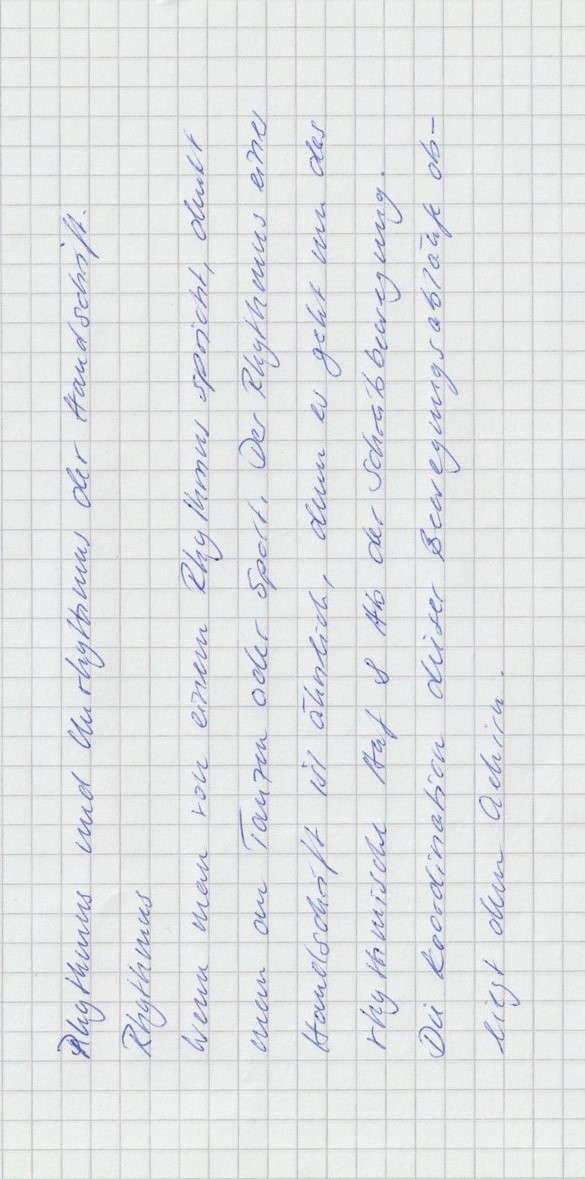 Rhythmus und Unrhythmus der Handschrift.
Rhythmus
Wenn man von einem Rhythmus spricht, denkt
man an Tanzen oder Sport. Der Rhythmus eine
Handschrift ist ähnlich, denn es geht um das
rhythmische Auf & Ab der Schreibbewegung.
Die Koordination dieser Bewegungsabläufe ob-
liegt dem Gehirn.